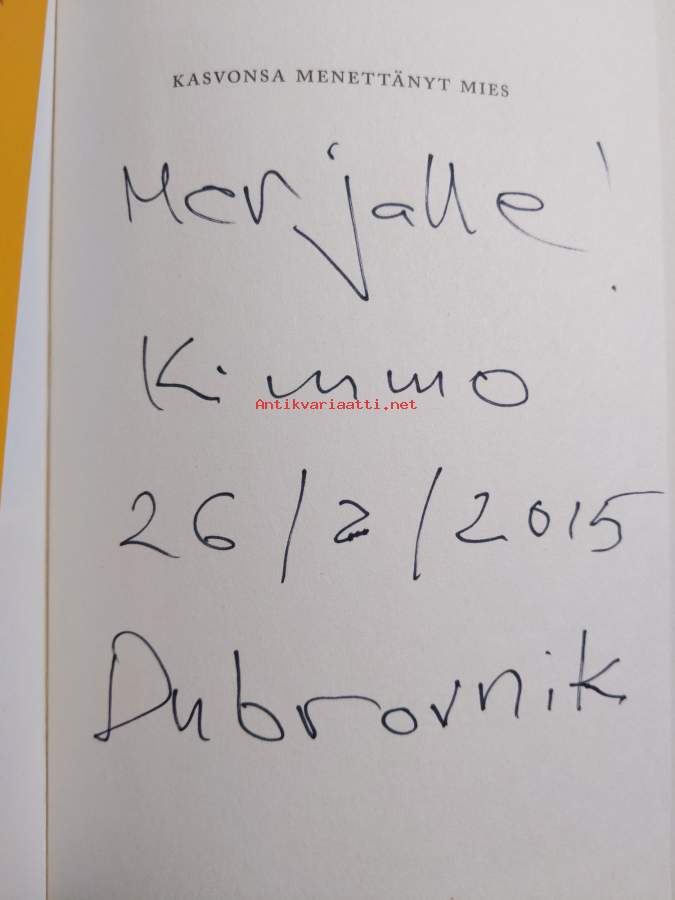 KASVONSA MENETTÄNYT MIES
Merjalle!
Kimmo
Antikvariaatti.net
26/2/2015
Dubrovnik